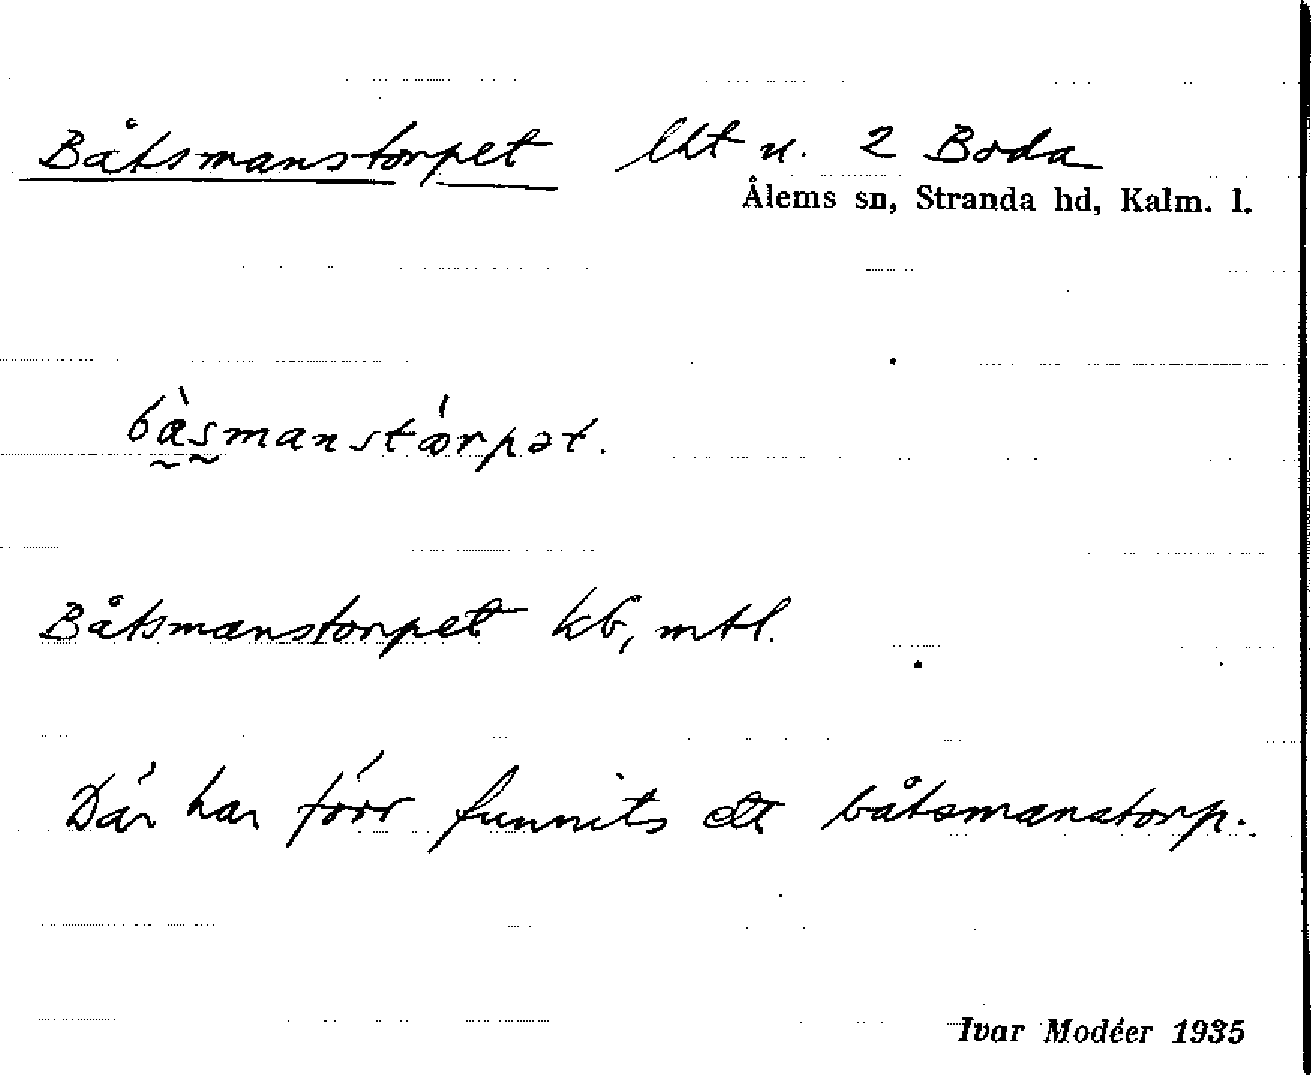 Båtsmanstorpet lht u. 2 Boda
Ålems sn, Stranda hd, Kalm. l.
bàsmanstórpət.
Båtsmanstorpet kb, mtl.
Där har förr funnits ett båtsmanstorp.
Ivar Modéer 1935